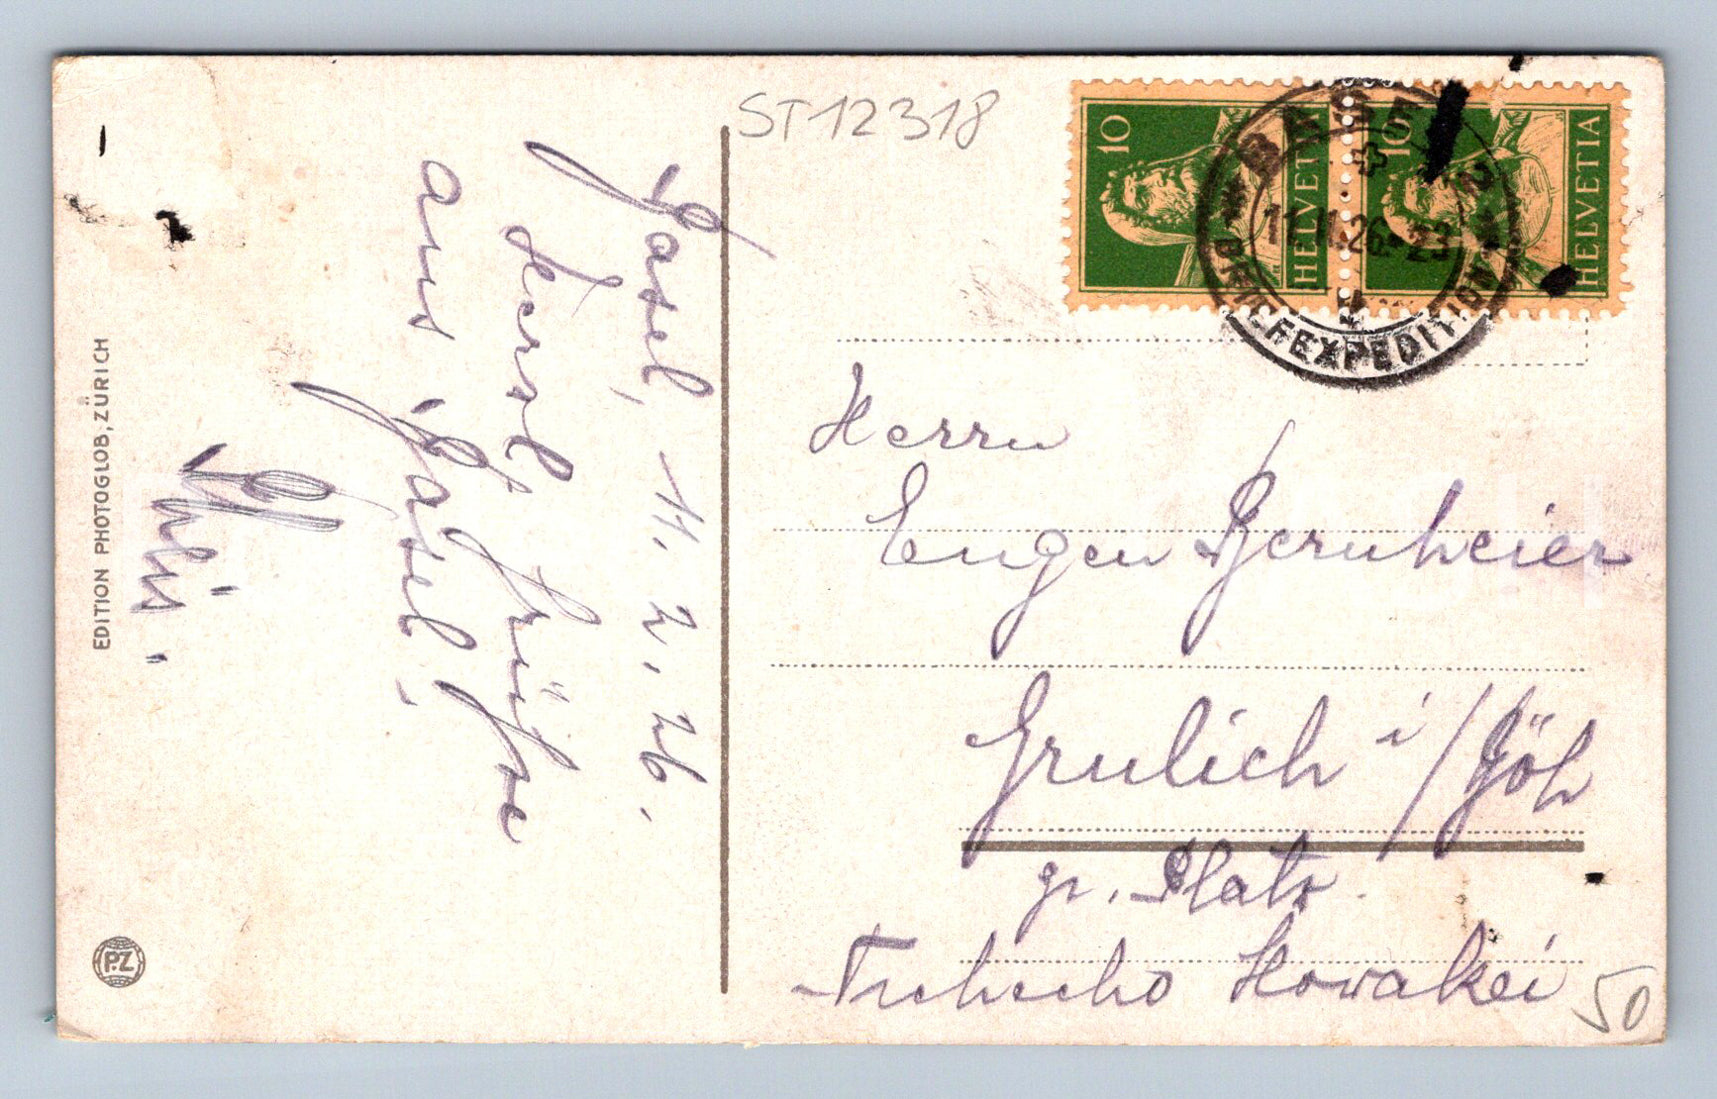 ST12318
Basel, 11. 2. 26.
Herzl. Grüsse
aus Basel.
EDITION PHOTOGLOB, ZÜRICH
P.Z
10
HELVETIA
10
HELVETIA
BASEL 2
11.II.26-23
BRIEFEXPEDITION
Herrn
Eugen Bernheier
Grulich i/Böh
gr. Platz.
Tschecho Slowakei
50